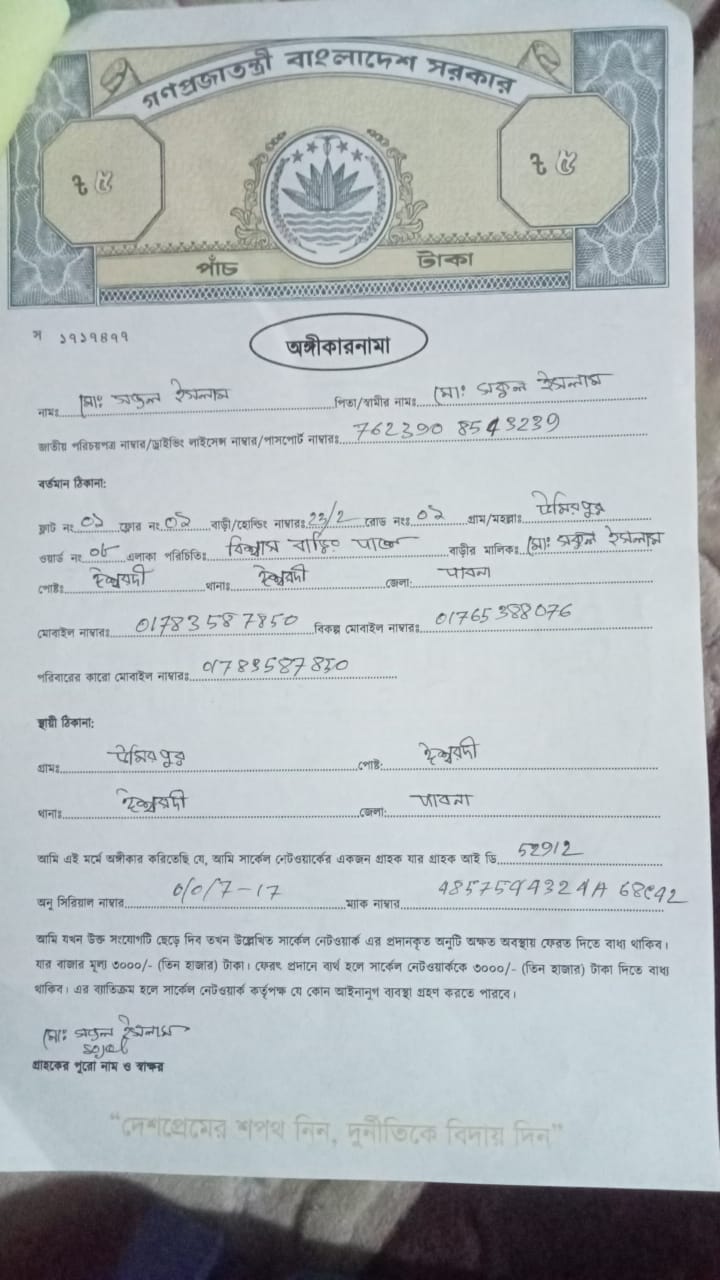 গণপ্রজাতন্ত্রী বাংলাদেশ সরকার
৳ ৫
৳ ৫
পাঁচ টাকা
স ১৭১৭৪৭৭
অঙ্গীকারনামা
নামঃ মোঃ ইসলাম পিতা/স্বামীর নামঃ মোঃ ইসলাম
জাতীয় পরিচয়পত্র নাম্বার/ড্রাইভিং লাইসেন্স নাম্বার/পাসপোর্ট নাম্বারঃ 762390 8543239
বর্তমান ঠিকানা:
ফ্লাট নং ০১ ফ্লোর নং ০১ বাড়ী/হোল্ডিং নাম্বারঃ 23/2 রোড নংঃ ০১ গ্রাম/মহল্লাঃ
ওয়ার্ড নং ০৮ এলাকা পরিচিতিঃ বিশ্বাস বাড়ির পাশে বাড়ীর মালিকঃ মোঃ ইসলাম
পোষ্টঃ ঈশ্বরদী থানাঃ ঈশ্বরদী জেলা: পাবনা
মোবাইল নাম্বারঃ 01783587850 বিকল্প মোবাইল নাম্বারঃ 01765388076
পরিবারের কারো মোবাইল নাম্বারঃ 01783587850
স্থায়ী ঠিকানা:
গ্রামঃ পোষ্ট: ঈশ্বরদী
থানাঃ ঈশ্বরদী জেলা: পাবনা
আমি এই মর্মে অঙ্গীকার করিতেছি যে, আমি সার্কেল নেটওয়ার্কের একজন গ্রাহক যার গ্রাহক আই ডি 52912
অনু সিরিয়াল নাম্বার ম্যাক নাম্বার
আমি যখন উক্ত সংযোগটি ছেড়ে দিব তখন উল্লেখিত সার্কেল নেটওয়ার্ক এর প্রদানকৃত অনুটি অক্ষত অবস্থায় ফেরত দিতে বাধ্য থাকিব।
যার বাজার মূল্য ৩০০০/- (তিন হাজার) টাকা। ফেরৎ প্রদানে ব্যর্থ হলে সার্কেল নেটওয়ার্ককে ৩০০০/- (তিন হাজার) টাকা দিতে বাধ্য
থাকিব। এর ব্যতিক্রম হলে সার্কেল নেটওয়ার্ক কর্তৃপক্ষ যে কোন আইনানুগ ব্যবস্থা গ্রহণ করতে পারবে।
মোঃ ইসলাম
গ্রাহকের পুরো নাম ও স্বাক্ষর
“দেশপ্রেমের শপথ নিন, দুর্নীতিকে বিদায় দিন”